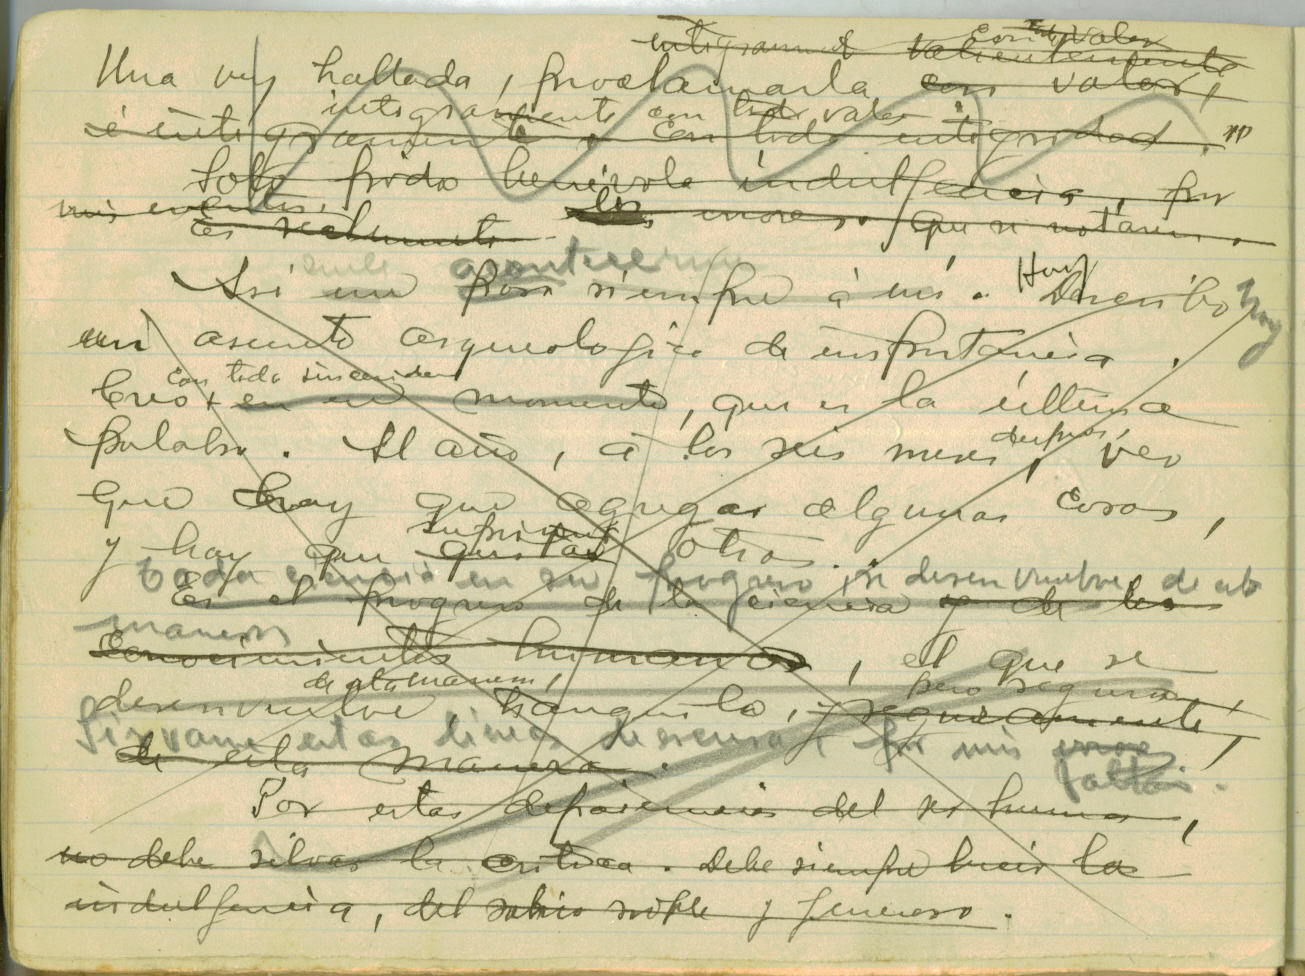 integramente con todo valor
valientemente
Una vez hallada, proclamarla con valor,
integramente con todo valor
é integramente. Con toda integridad."
Solo pido benévola indulgencia, por
mis errores. que se notaren.
acontecer
Asi me pasa siempre á mi. Hoy Describo hoy
un asunto arqueologico de importancia.
con toda sinceridad
Creo en ese momento, que es la última
palabra. Al año, á los seis meses después, veo
que hay que agregar algunas cosas,
y hay que suprimir quitar otras.
Toda ciencia en su progreso, se desenvuelve de esta
Es el progreso de la ciencia y de los
manera
conocimientos humanos, el que se
de esta manera, pero segura,
desenvuelve tranquila, y seguramente,
Sirvan estas lineas de escusa, por mis errores
de esta manera. faltas.
Por estas deficiencias del ser humano,
no debe silvar la critica. Debe siempre lucir la
indulgencia, del sabio noble y generoso.